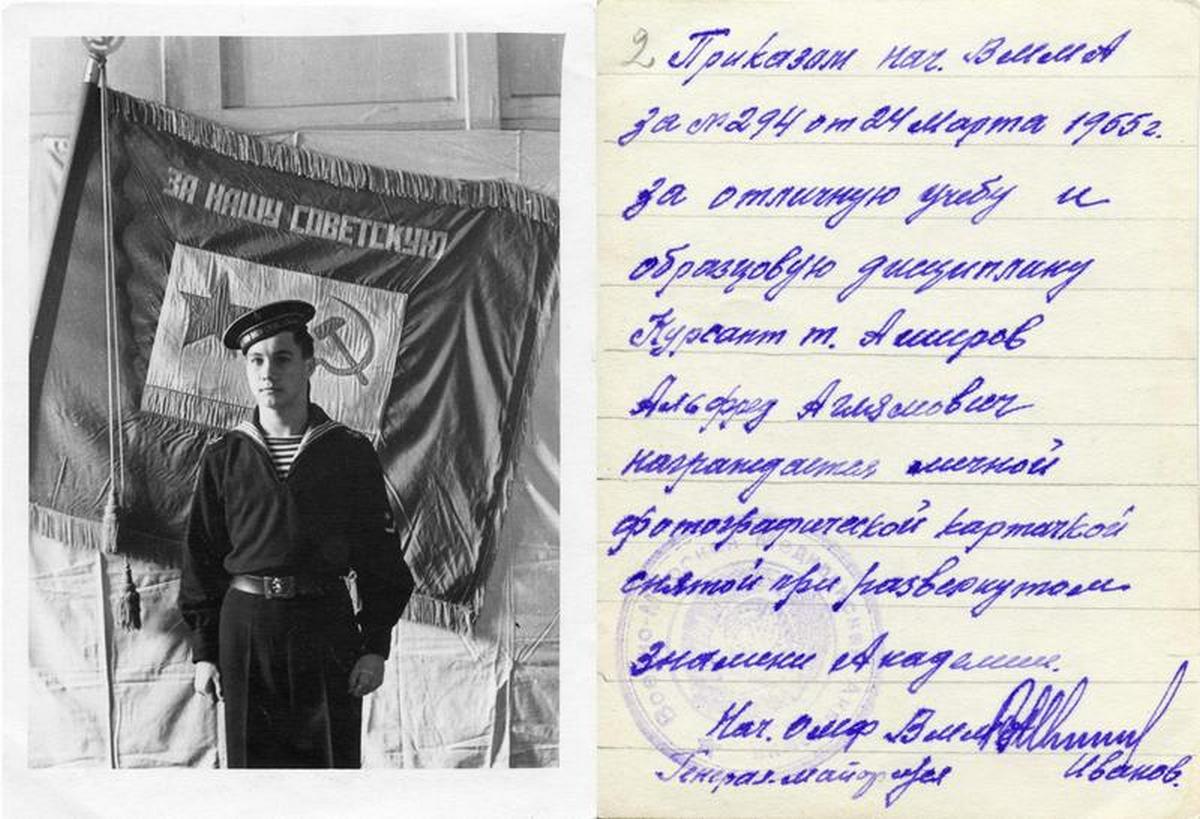 ЗА НАШУ СОВЕТСКУЮ
2 Приказом нач. ВММА
за №294 от 24 Марта 1955г.
за отличную учебу и
образцовую дисциплину
Курсант т. Амиров
Альфред Аглямович
награждается личной
фотографической карточкой
снятой при развернутом
Знамени Академии.
Нач. ОМФ ВММА
Генерал-майор
Иванов.